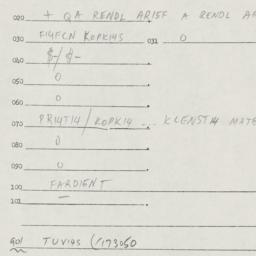 020 + QA RENDL ARIEF A RENDL AF
030 FI4FCN KOPKI4S 031 0
040 $-/$-
050 0
060 0
070 PRI4TI4/KOPKI4 ... KLENSTI4 MATE
080 0
090 0
100 FARDIENT
101 —
901 TUVI4S (/173050